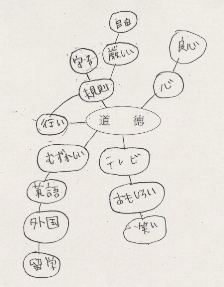 自由
厳しい
学校
規則
良心
心
行い
道徳
むずかしい
テレビ
英語
おもしろい
外国
笑い
留学